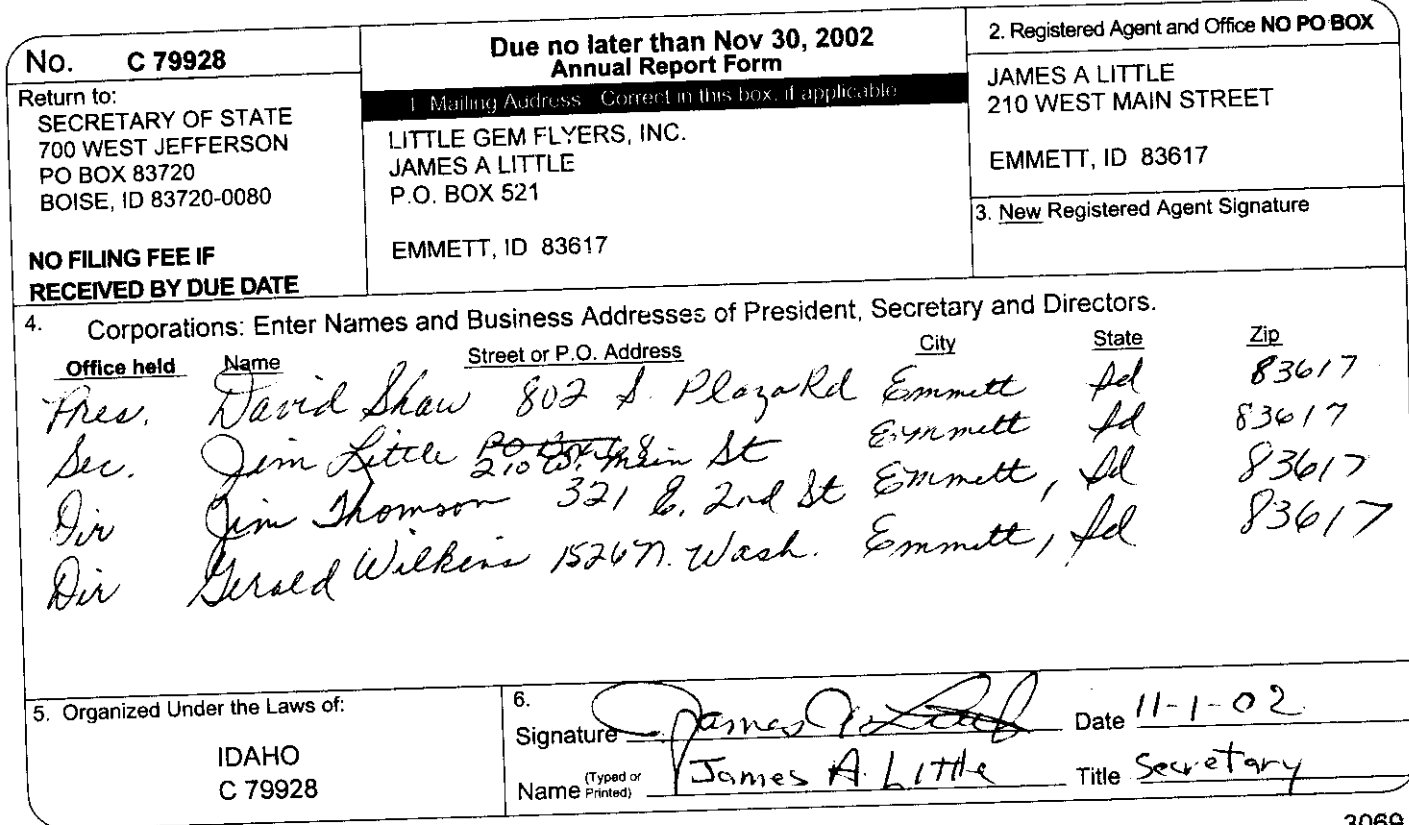 No. C 79928
Return to:
SECRETARY OF STATE
700 WEST JEFFERSON
PO BOX 83720
BOISE, ID 83720-0080
NO FILING FEE IF
RECEIVED BY DUE DATE
Due no later than Nov 30, 2002
Annual Report Form
1. Mailing Address Correct in this box, if applicable
LITTLE GEM FLYERS, INC.
JAMES A LITTLE
P.O. BOX 521
EMMETT, ID 83617
2. Registered Agent and Office NO PO BOX
JAMES A LITTLE
210 WEST MAIN STREET
EMMETT, ID 83617
3. New Registered Agent Signature
4. Corporations: Enter Names and Business Addresses of President, Secretary and Directors.
Office held Name Street or P.O. Address City State Zip
Pres. David Shaw 802 S. Plaza Rd Emmett Id 83617
Sec. Jim Little 210 W. Main St Emmett Id 83617
Dir Jim Thomson 321 E. 2nd St Emmett, Id 83617
Dir Gerald Wilkins 1526 N. Wash. Emmett, Id 83617
5. Organized Under the Laws of:
IDAHO
C 79928
6.
Signature James A Little Date 11-1-02
Name (Typed or Printed) James A. Little Title Secretary
3069